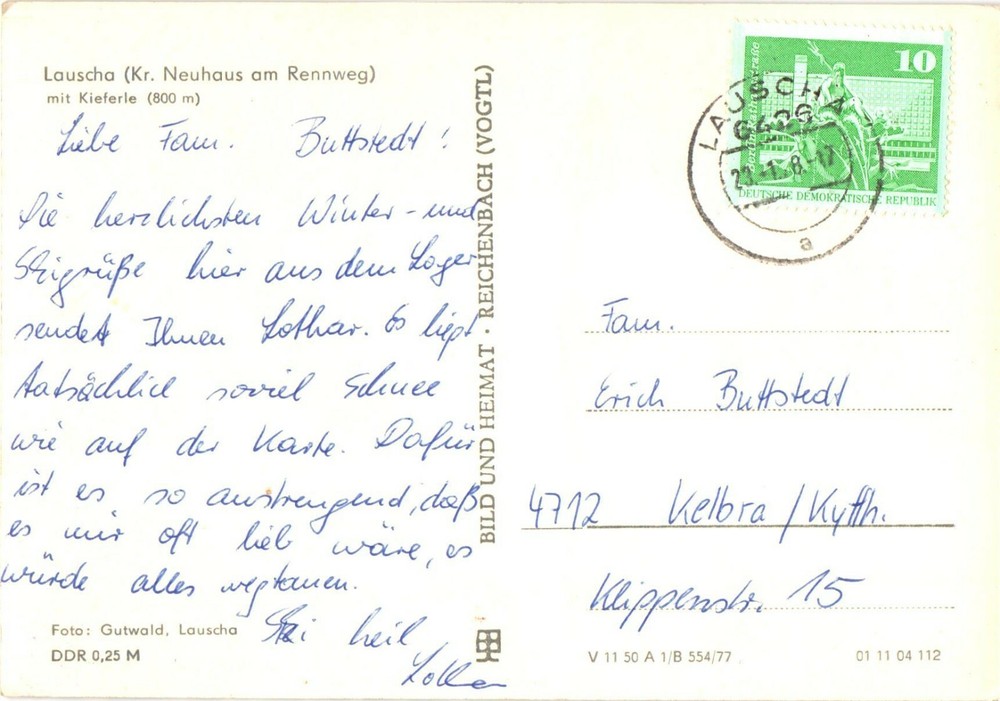 Lauscha (Kr. Neuhaus am Rennweg)
mit Kieferle (800 m)
Liebe Fam. Buttstedt!
Die herzlichsten Winter- und
Skigrüße hier aus dem Lager
sendet Ihnen Lothar. Es liegt
tatsächlich soviel Schnee
wie auf der Karte. Dafür
ist es so anstrengend, daß
es mir oft lieb wäre, es
würde alles wegtauen.
Ski heil
Lothar
Foto: Gutwald, Lauscha
DDR 0,25 M
BILD UND HEIMAT · REICHENBACH (VOGTL)
10
DEUTSCHE DEMOKRATISCHE REPUBLIK
LAUSCHA
6426
a
Fam.
Erich Buttstedt
4712 Kelbra/Kyffh.
Klippenstr. 15
V 11 50 A 1/B 554/77
01 11 04 112